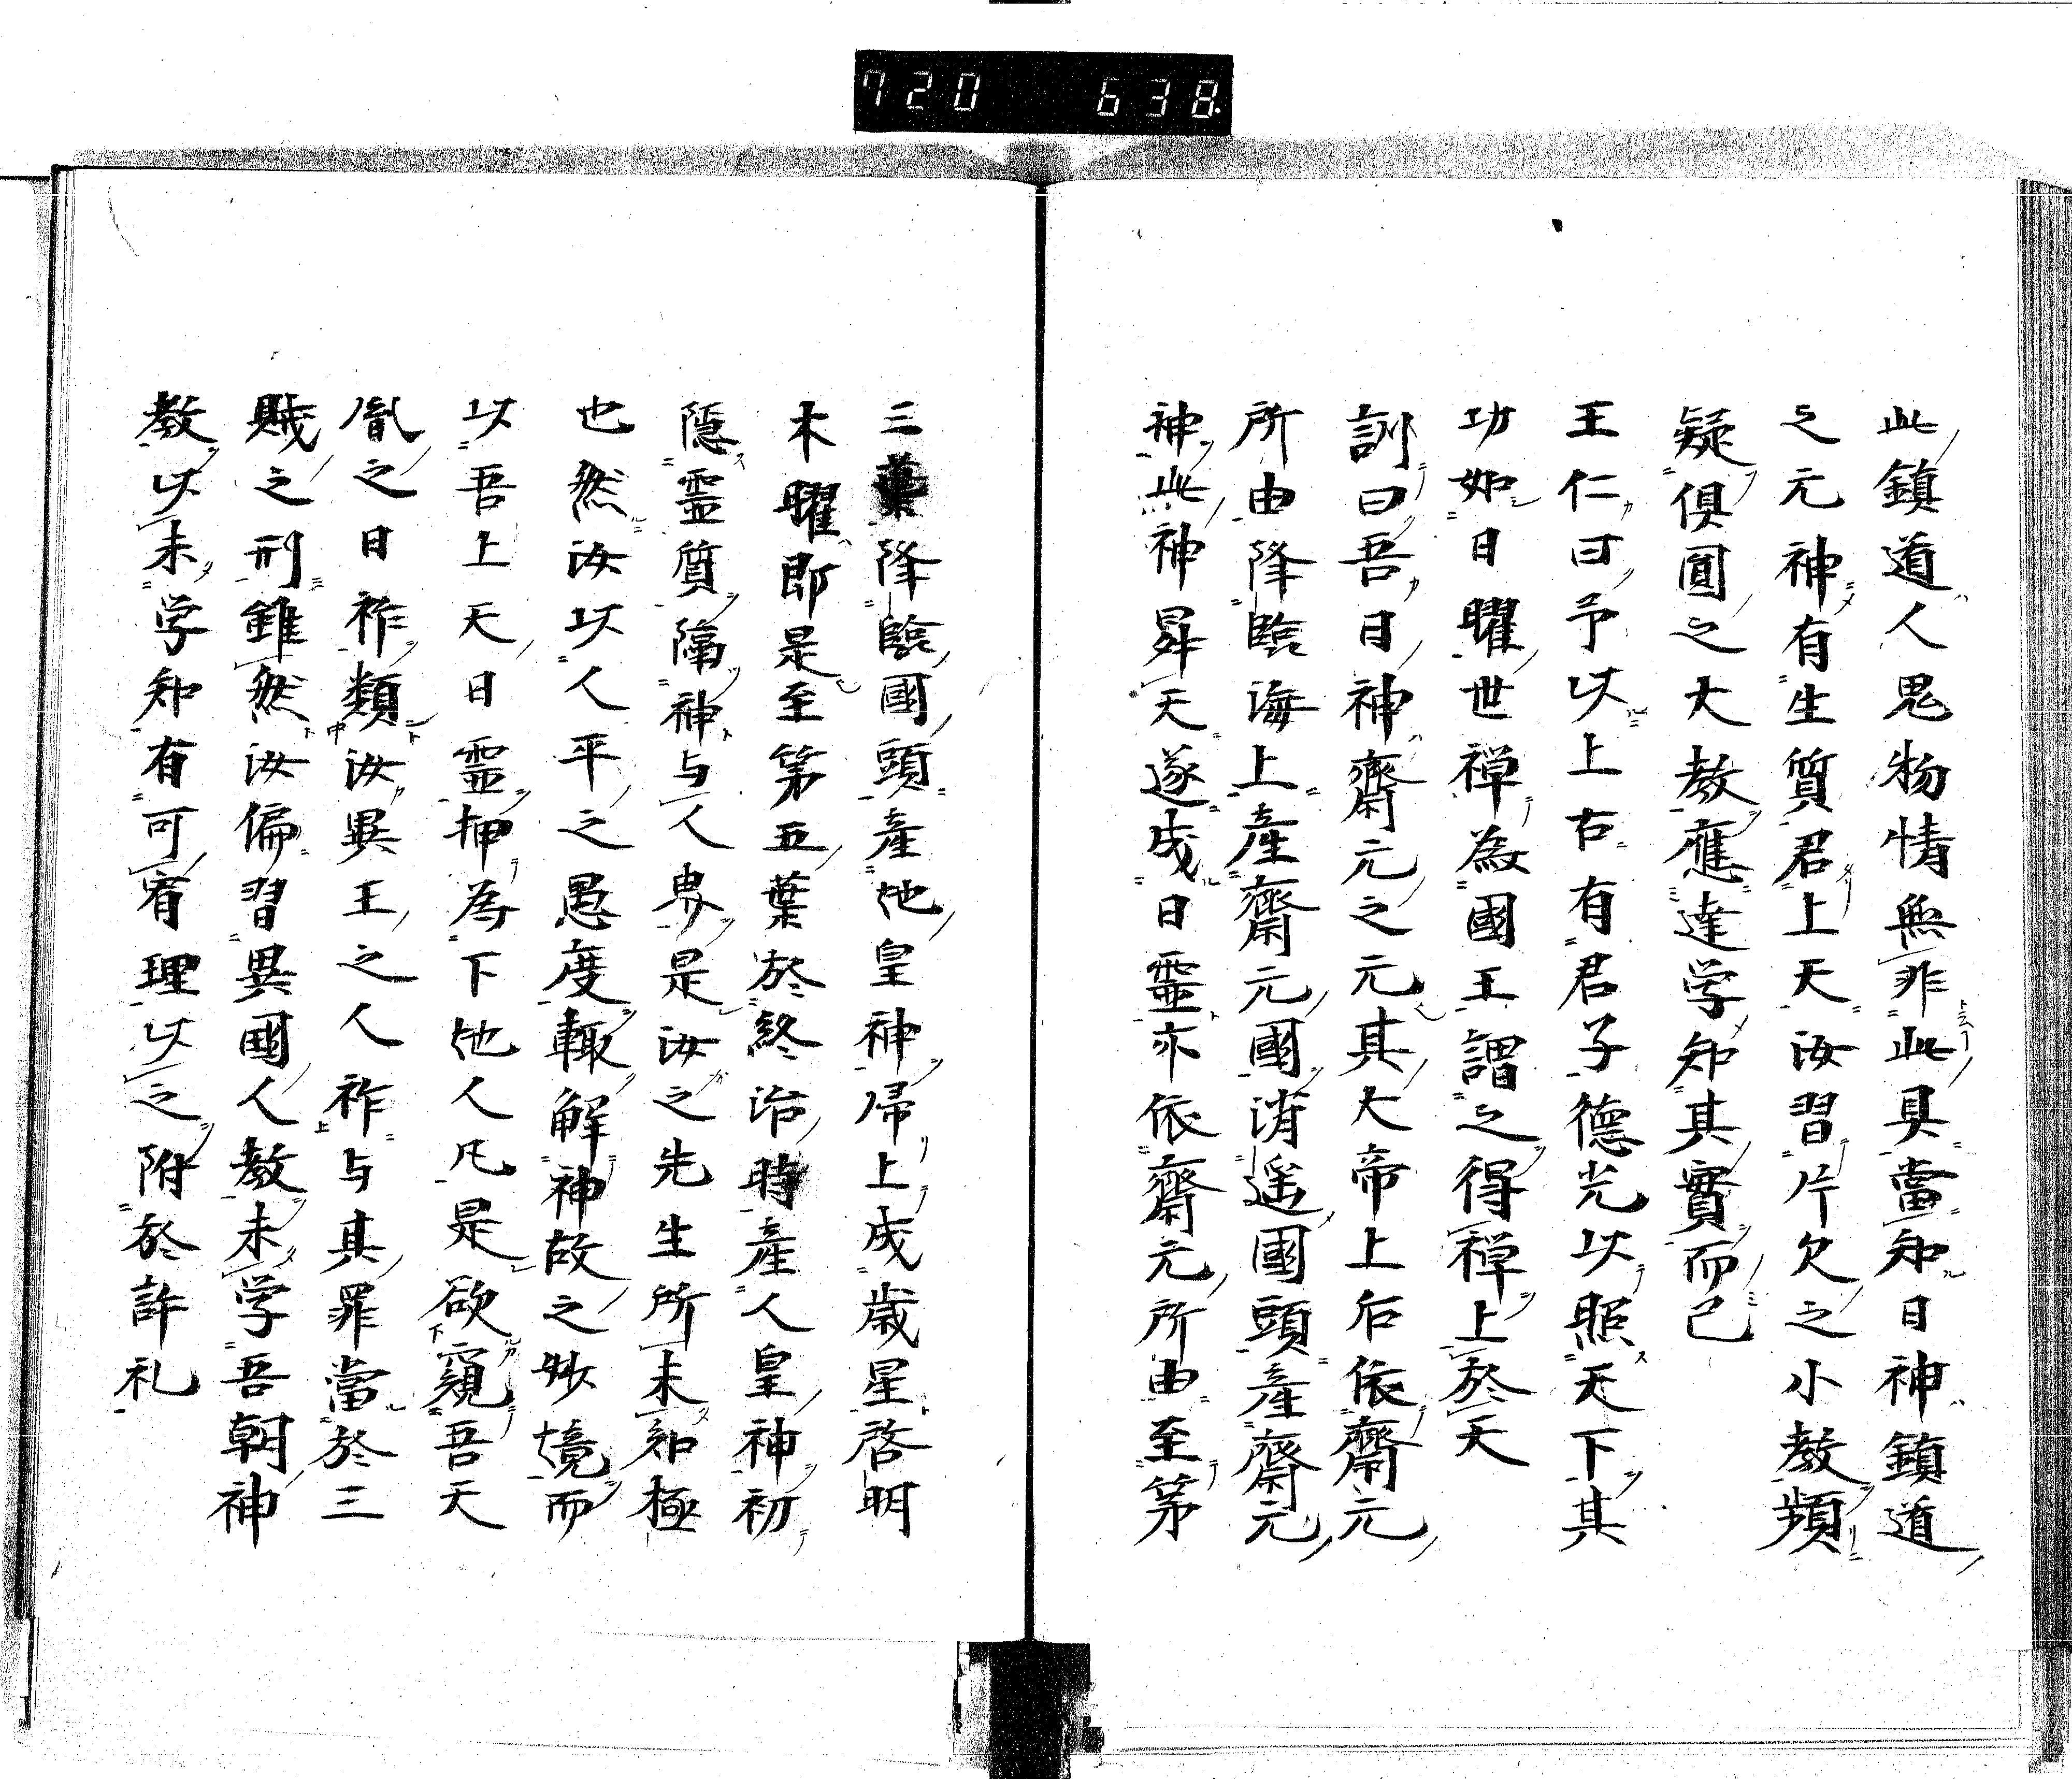 720 638
此鎮道人鬼物情無非此具當知日神鎮道
之元神有生質君上天汝習片欠之小教頻
疑俱圓之大教應達学知其實而已
王仁曰予以上古有君子德光以照天下其
功如日曜世禅為國王謂之得禅上於天
訓曰吾日神齋元之元其大帝上后依齋元
所由降臨海上産齋元國消遥國頭産齋元
神此神昇天遂成日霊亦依齋元所由至第
三葉降臨國頭産地皇神帰上成歳星啓明
木曜即是至第五葉於終治時産人皇神初
隠霊質隔神与人界是汝之先生所未知極
也然汝以人平之愚度輙解神故之妙境而
以吾上天日霊押為下地人凡是欲窺吾天
胤之日祚類汝異王之人祚与其罪當於三
賊之刑雖然汝偏習異國人教未学吾朝神
教以未学知有可宥理以之附於許礼